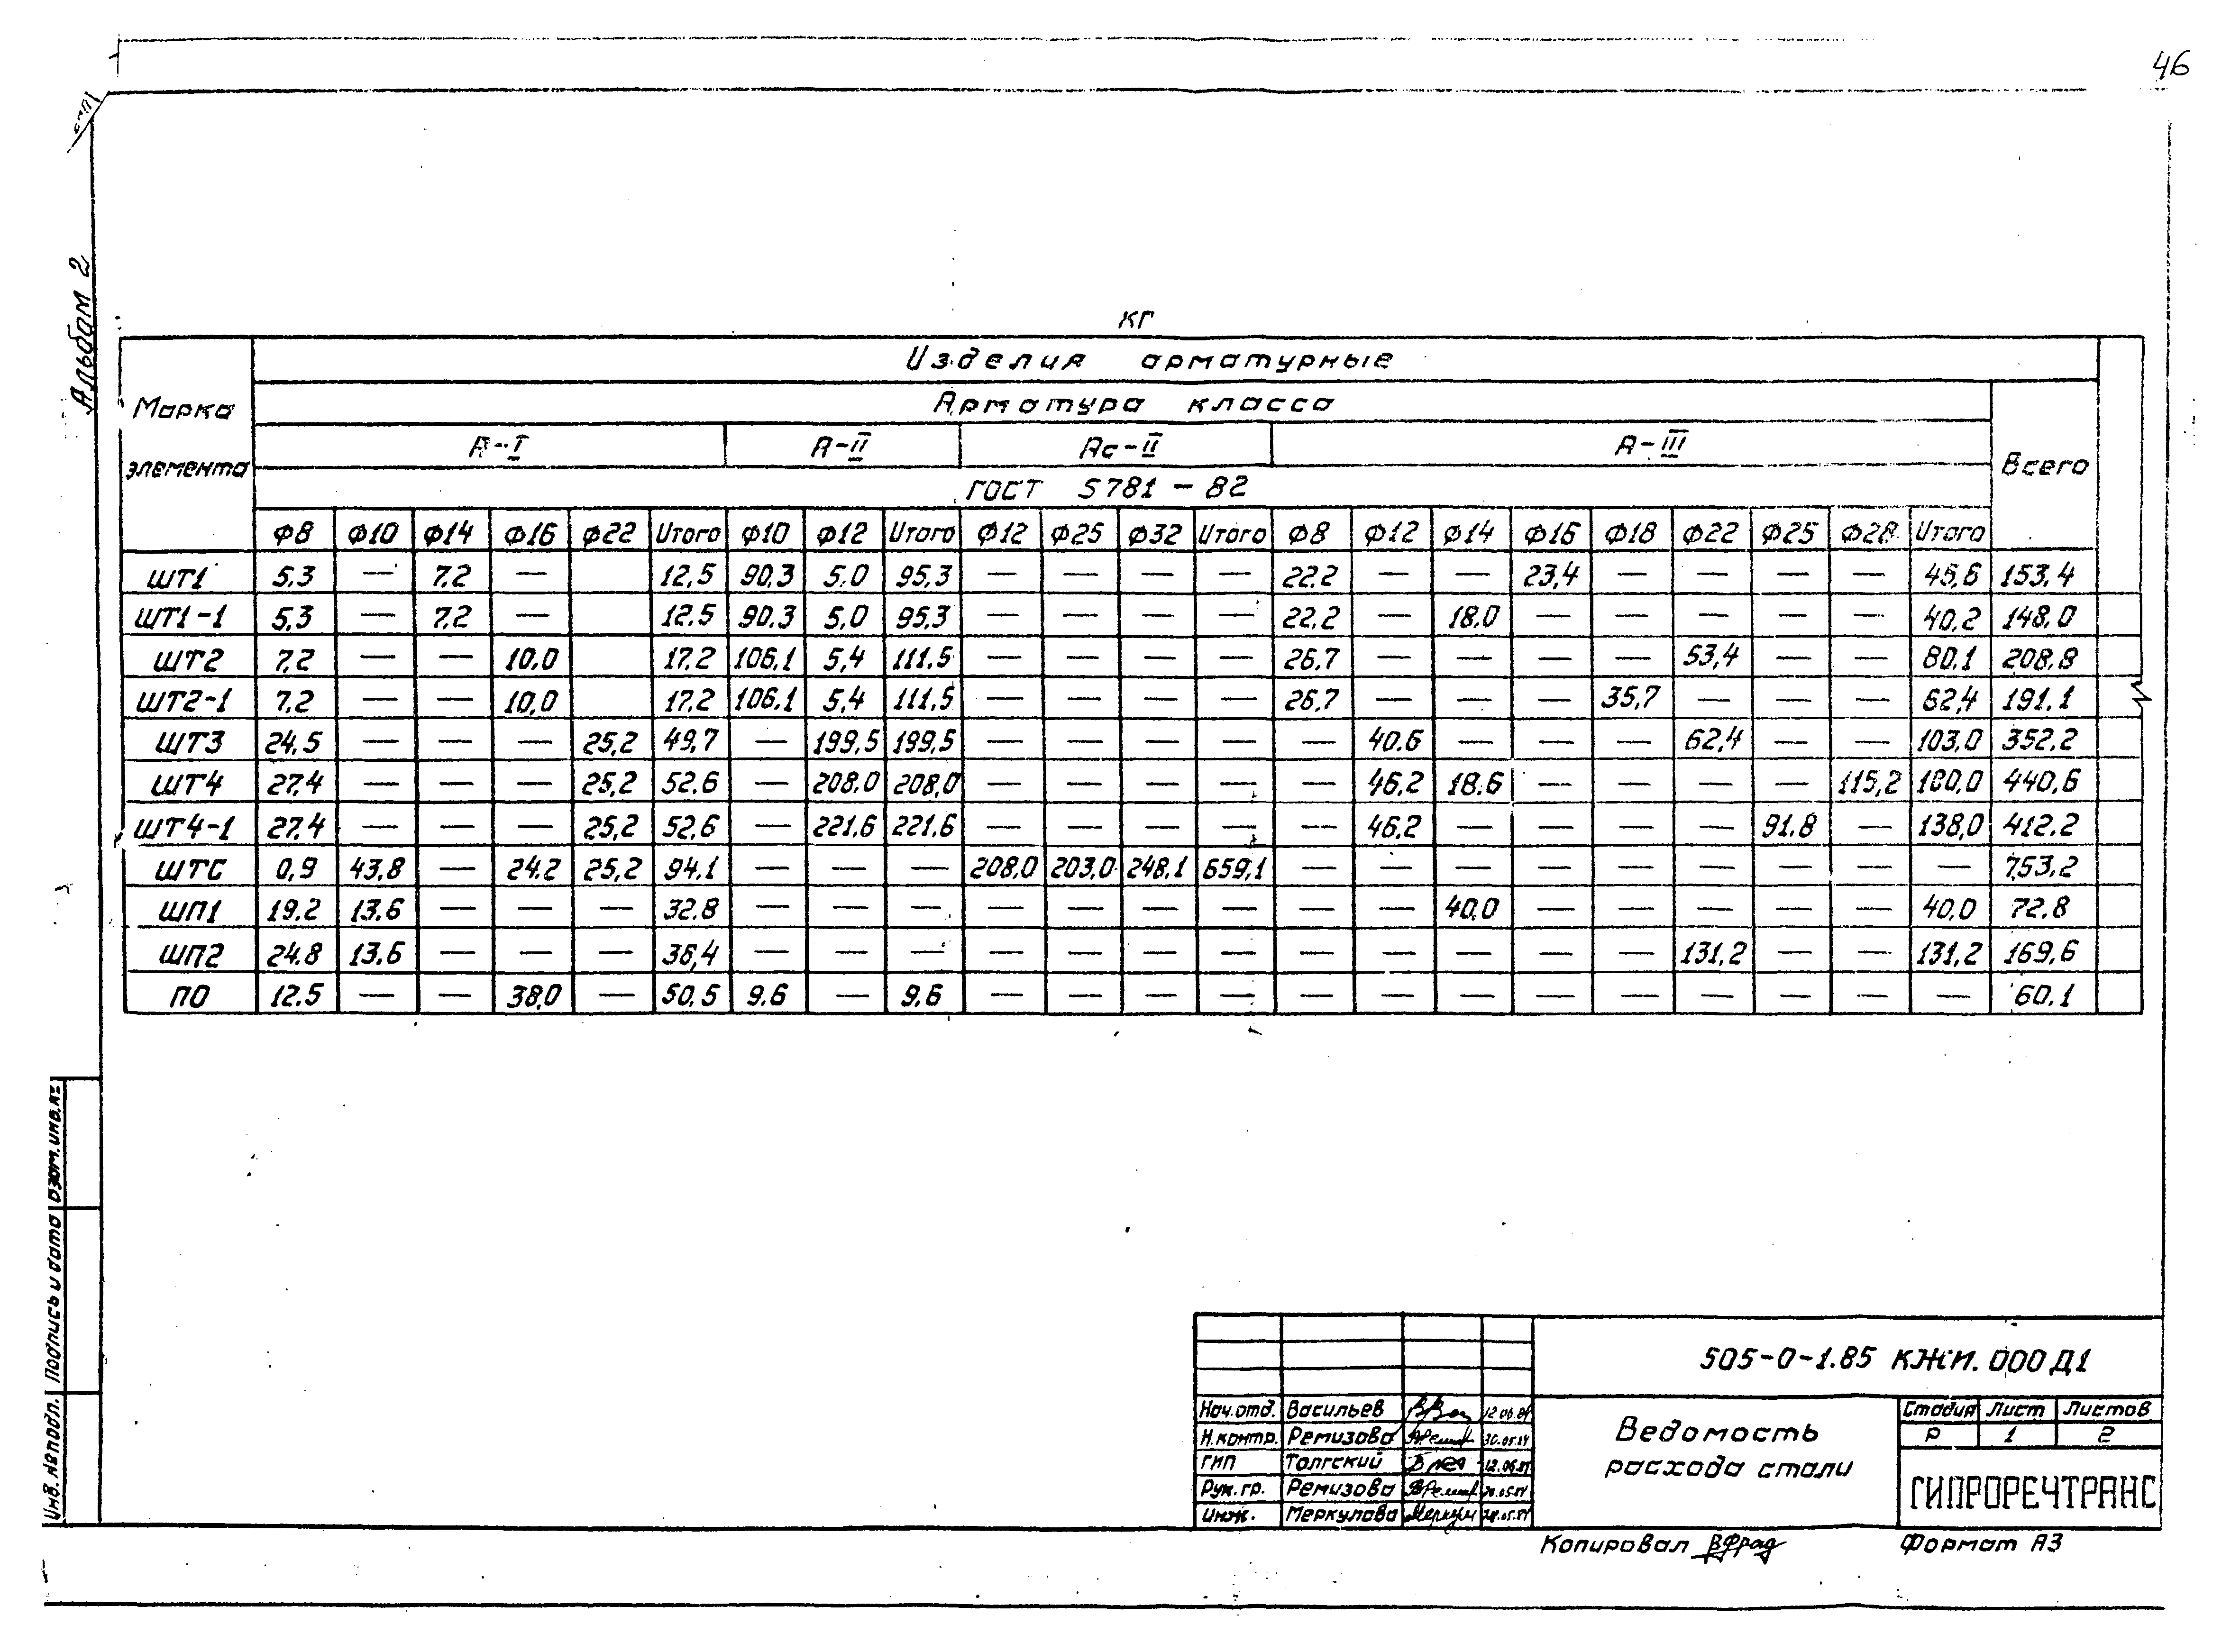 46
Альбом 2
кг
Изделия арматурные
Марка элемента
Арматура класса
Всего
А-I А-II Ас-II А-III
ГОСТ 5781-82
Ф8 Ф10 Ф14 Ф16 Ф22 Итого Ф10 Ф12 Итого Ф12 Ф25 Ф32 Итого Ф8 Ф12 Ф14 Ф16 Ф18 Ф22 Ф25 Ф28 Итого
ШТ1 5,3 — 7,2 — 12,5 90,3 5,0 95,3 — — — — 22,2 — — 23,4 — — — — 45,6 153,4
ШТ1-1 5,3 — 7,2 — 12,5 90,3 5,0 95,3 — — — — 22,2 — 18,0 — — — — — 40,2 148,0
ШТ2 7,2 — — 10,0 17,2 106,1 5,4 111,5 — — — — 26,7 — — — — 53,4 — — 80,1 208,8
ШТ2-1 7,2 — — 10,0 17,2 106,1 5,4 111,5 — — — — 26,7 — — — 35,7 — — — 62,4 191,1
ШТ3 24,5 — — — 25,2 49,7 — 199,5 199,5 — — — — — 40,6 — — — 62,4 — — 103,0 352,2
ШТ4 27,4 — — — 25,2 52,6 — 208,0 208,0 — — — — — 46,2 18,6 — — — — 115,2 180,0 440,6
ШТ4-1 27,4 — — — 25,2 52,6 — 221,6 221,6 — — — — — 46,2 — — — — 91,8 — 138,0 412,2
ШТС 0,9 43,8 — 24,2 25,2 94,1 — — — 208,0 203,0 248,1 659,1 — — — — — — — — — 753,2
ШП1 19,2 13,6 — — — 32,8 — — — — — — — — — 40,0 — — — — — 40,0 72,8
ШП2 24,8 13,6 — — — 36,4 — — — — — — — — — — — — 131,2 — — 131,2 169,6
ПО 12,5 — — 38,0 — 50,5 9,6 — 9,6 — — — — — — — — — — — — — 60,1
Инв.№подл. Подпись и дата Взам.инв.№
505-0-1.85 КЖИ.000Д1
Нач.отд. Васильев
Н.контр. Ремизова
ГИП Толгский
Рук.гр. Ремизова
Инж. Меркулова
Ведомость
расхода стали
Стадия Лист Листов
Р 1 2
ГИПРОРЕЧТРАНС
Копировал
Формат А3